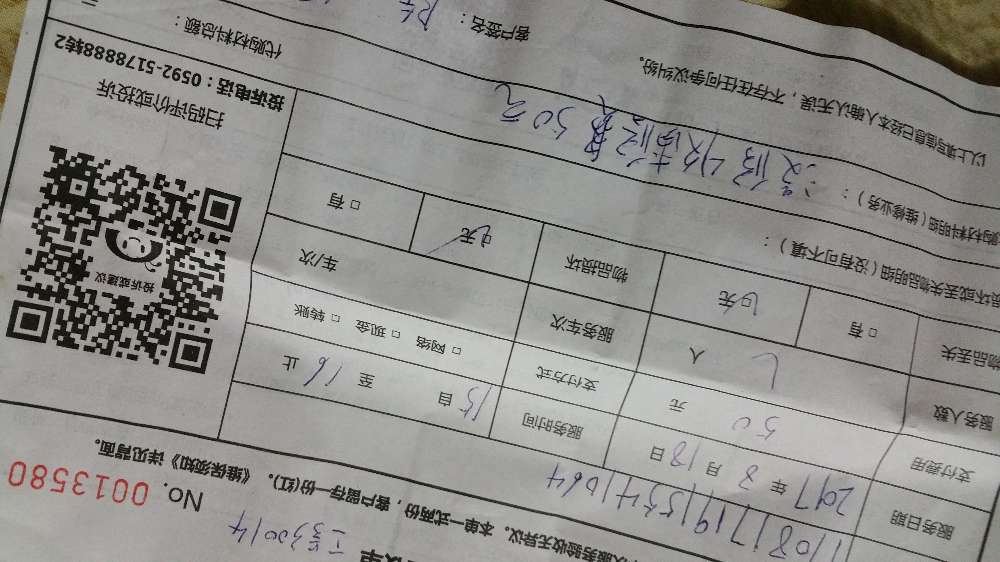 工号30014
No. 0013580
服务验收无异议。本单一式两份,客户留存一份(红)。《维保须知》详见背面。
1108171915341064
服务日期 2017 年 8 月 18 日 服务时间 15 自 至 16 止
支付费用 50 元 支付方式 □ 网络 □ 现金 □ 转账
服务人数 1 人 服务车次 车/次
物品丢失 □ 有 无 物品损坏 □ 有 无
坏或丢失物品明细(没有可不填):
购材料明细(维修业务):
没修收 50元
扫码评价或投诉
投诉电话:0592-5178888转2
投诉或建议
代购材料总额:
以上填写信息已经本人确认无误,不存在任何争议纠纷。
客户签名: